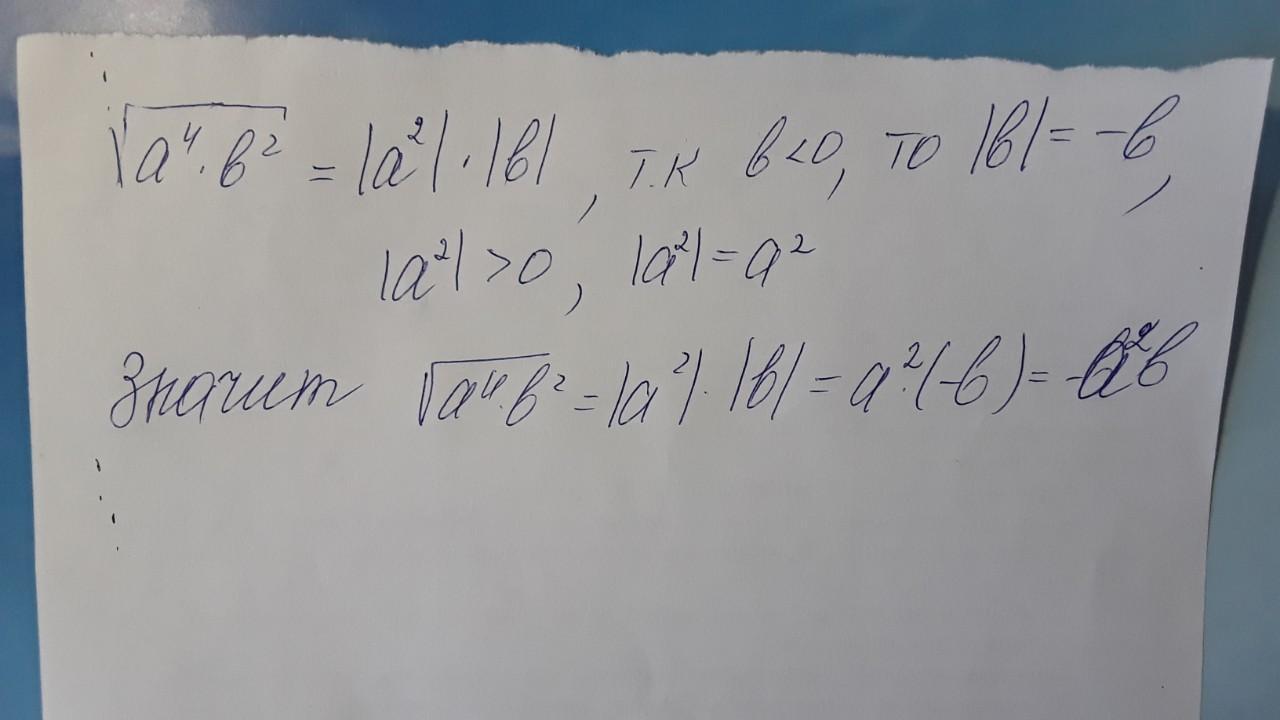 √a⁴·b² = |a²|·|b|, т.к b<0, то |b| = -b,
|a²| >0, |a²| = a²
Значит √a⁴·b² = |a²|·|b| = a²·(-b) = -a²b